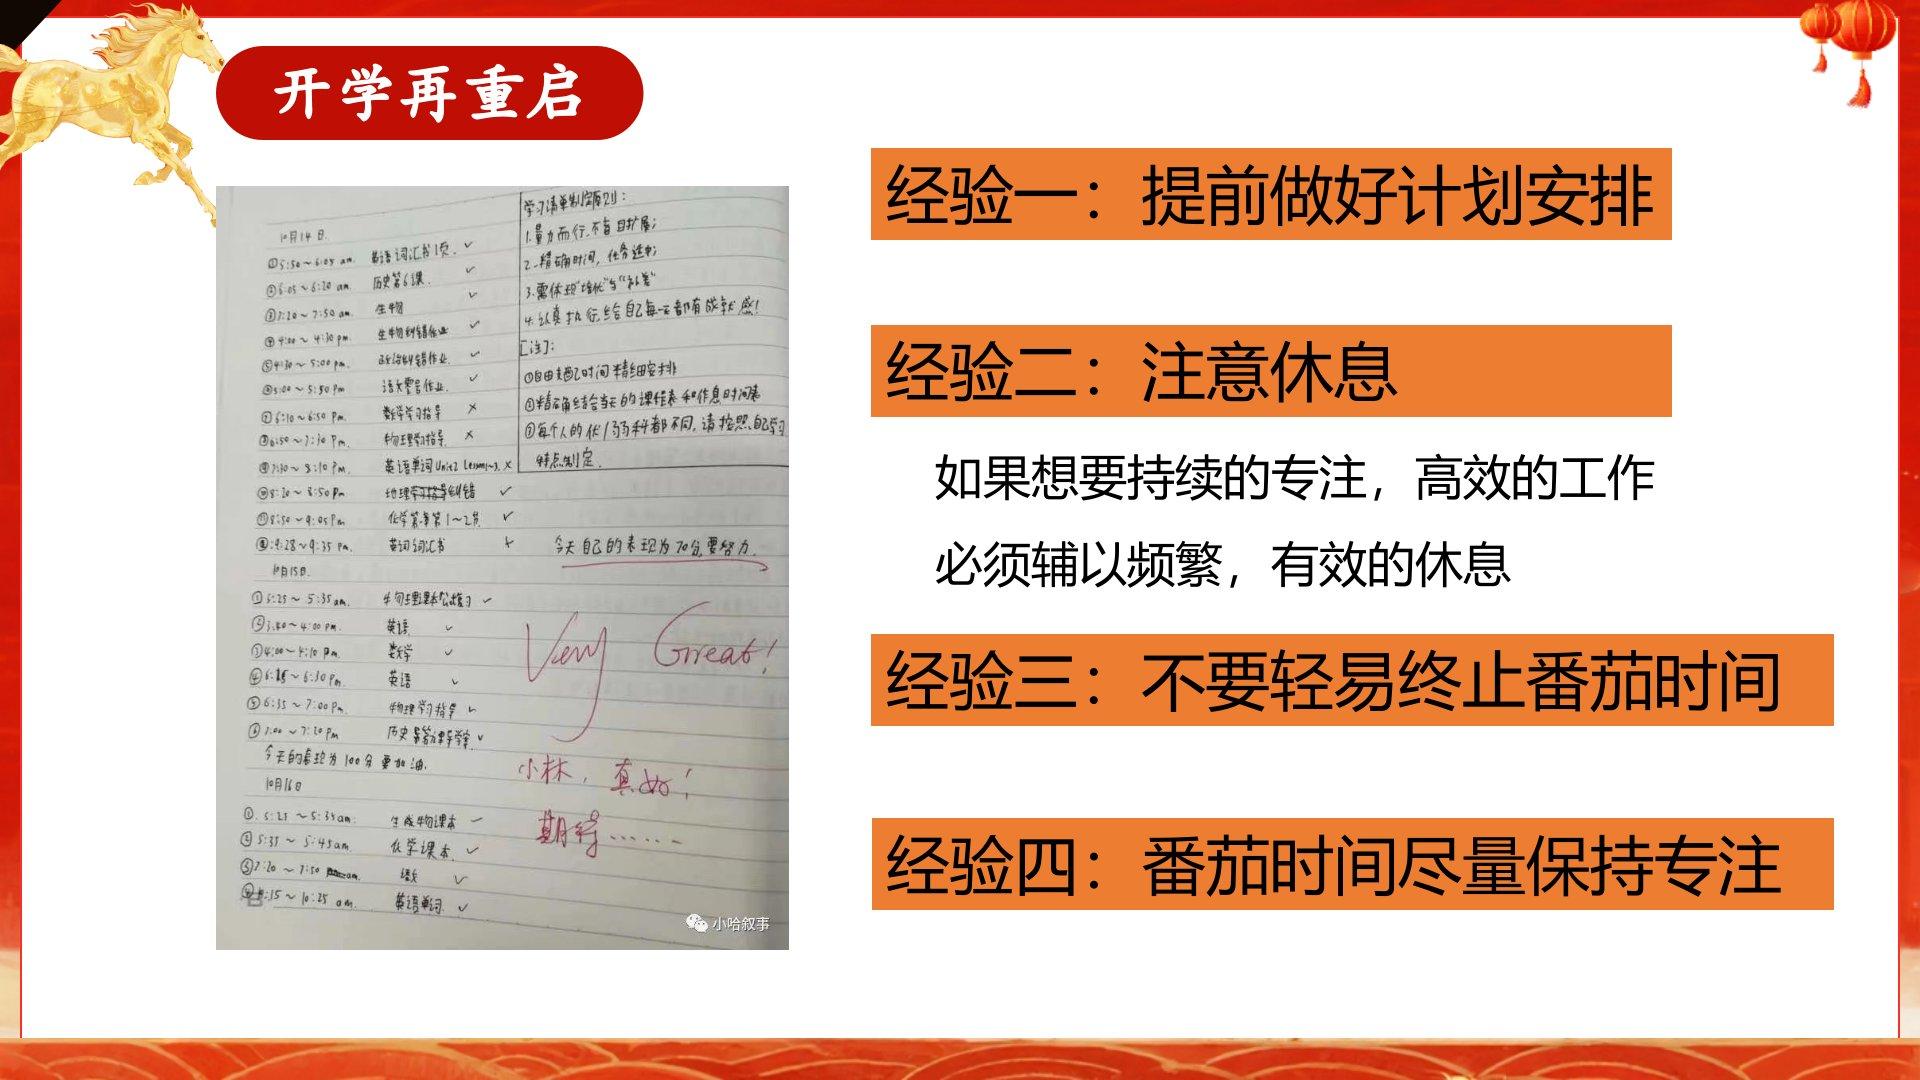 开学再重启
10月14日.
①5:50～6:05 am. 英语词汇书1页. ✓
②6:05～6:20 am. 历史第6课. ✓
③7:20～7:50 am. 生物 ✓
④4:00～4:30 pm. 生物纠错作业 ✓
⑤4:30～5:00 pm. 政治纠错作业. ✓
⑥5:00～5:50 pm 语文零号作业. ✓
⑦6:10～6:50 pm. 数学学习指导 ×
⑧6:50～7:30 pm. 物理学习指导. ×
⑨7:30～8:10 pm. 英语单词Unit2 Lesson1~3. ×
⑩8:20～8:50 pm 地理纠错 ✓
⑪8:50～9:05 pm 化学第1～2节 ✓
⑫9:28～9:35 pm. 词汇书
今天自己的表现为70分,要努力.
学习清单制定原则:
1.量力而行,不盲目扩展;
2.精确时间, 任务适中;
3.需体现"培优"与"补差"
4.认真执行,给自己每一天都有成就感!
[注]:
①自由支配时间精细安排
②精确结合当天的课程表和作息时间表
③每个人的优/弱科都不同,请按照自己学习
特点制定.
10月15日.
①5:25～5:35 am. 生物课本 ✓
②3:40～4:00 pm. 英语 ✓
③4:00～4:10 pm. 数学 ✓
④6:15～6:30 pm. 英语 ✓
⑤6:35～7:00 pm. 物理学习指导 ✓
⑥7:00～7:20 pm 历史 ✓
今天的表现为100分 要加油.
Very Great!
小林, 真如!
期待……
10月16日
①. 5:25～5:35 am. 生物课本
②5:35～5:45 am. 化学课本. ✓
③7:20～7:50 am. 语文 ✓
10:25 am. 英语单词. ✓
小哈叙事
经验一：提前做好计划安排
经验二：注意休息
如果想要持续的专注，高效的工作
必须辅以频繁，有效的休息
经验三：不要轻易终止番茄时间
经验四：番茄时间尽量保持专注